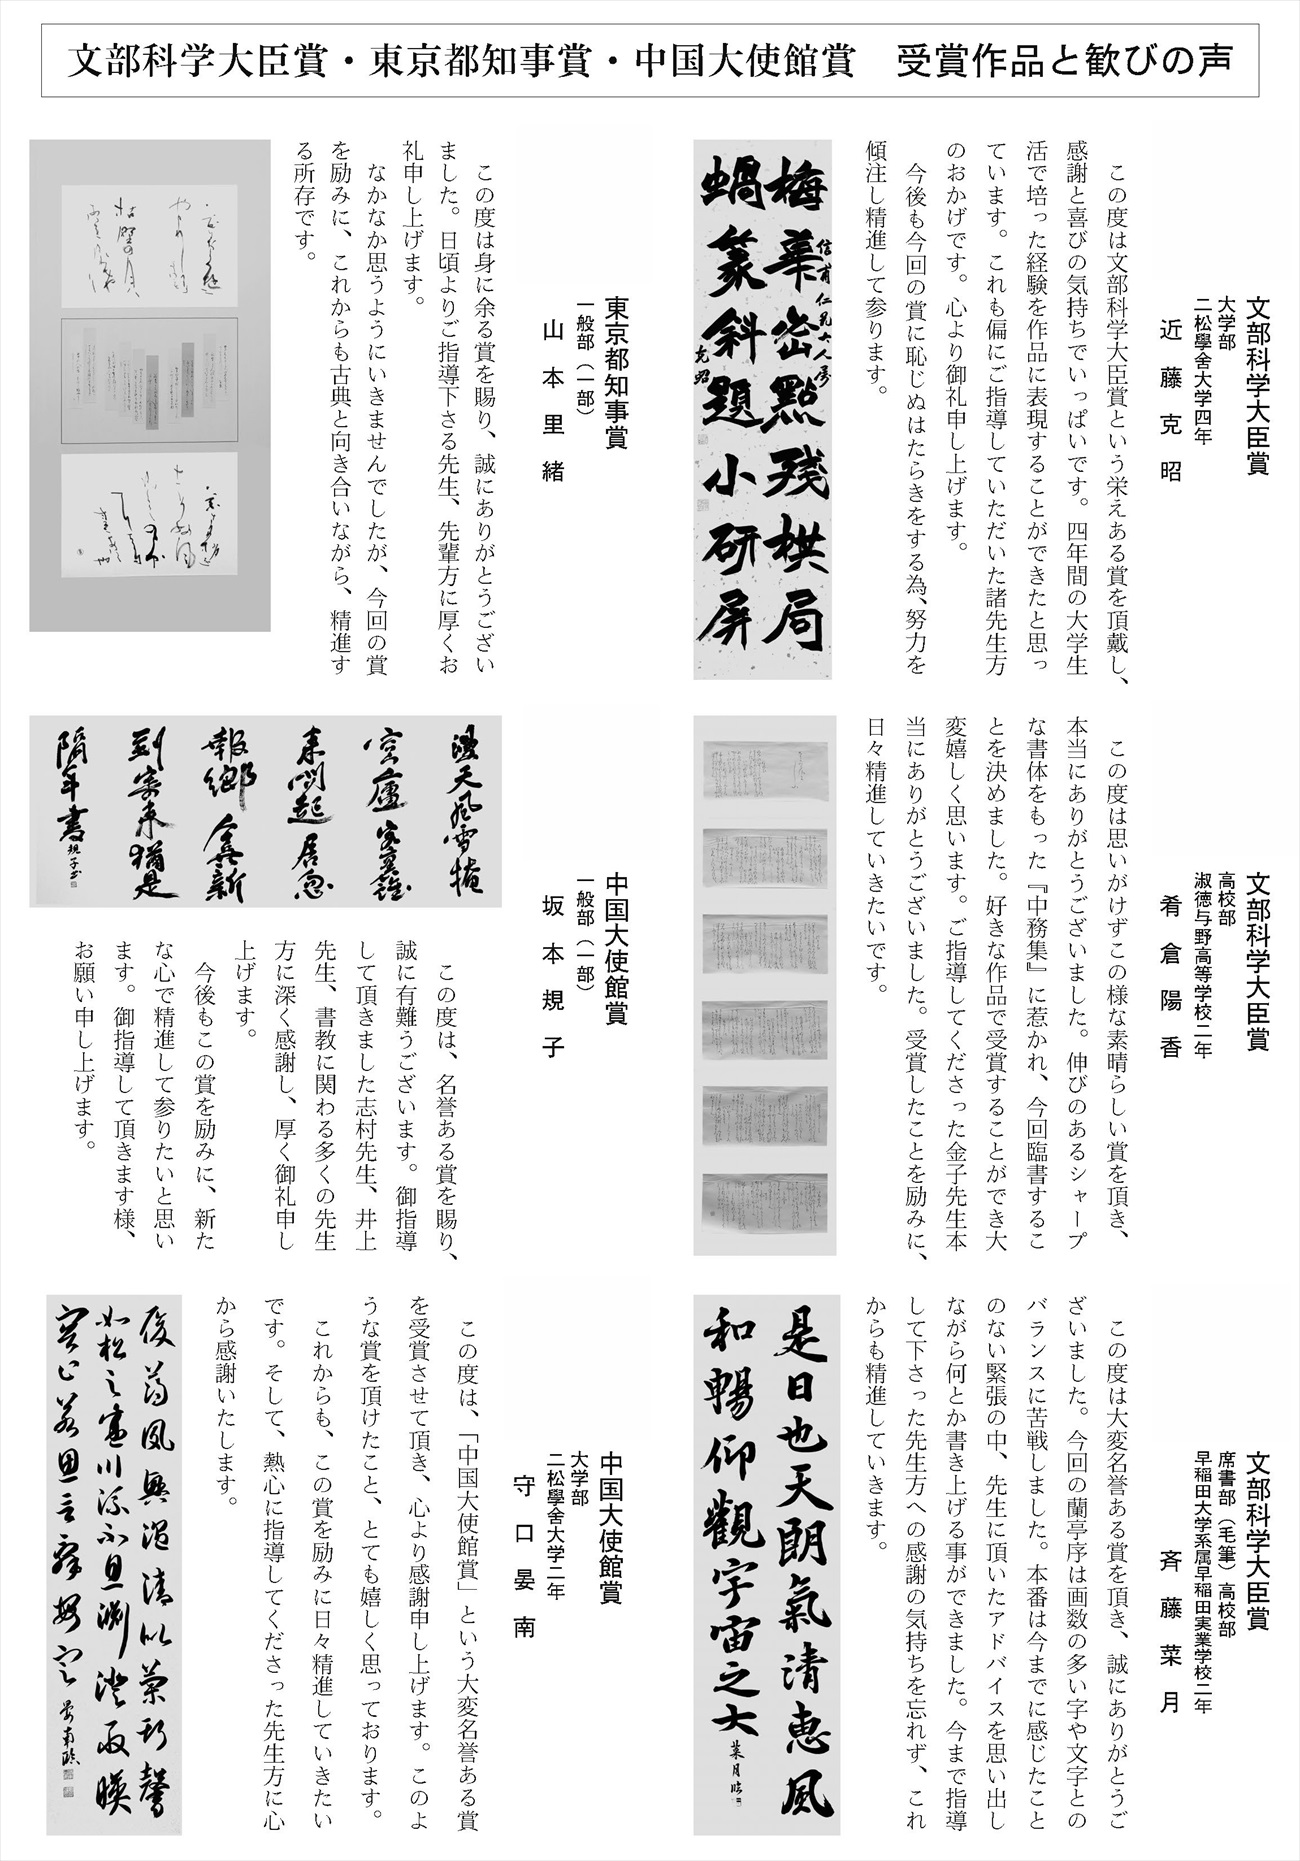 文部科学大臣賞・東京都知事賞・中国大使館賞　受賞作品と歓びの声
文部科学大臣賞
大学部
二松學舎大学四年
近藤克昭
この度は文部科学大臣賞という栄えある賞を頂戴し、
感謝と喜びの気持ちでいっぱいです。四年間の大学生
活で培った経験を作品に表現することができたと思っ
ています。これも偏にご指導していただいた諸先生方
のおかげです。心より御礼申し上げます。
今後も今回の賞に恥じぬはたらきをする為、努力を
傾注し精進して参ります。
梅華密點殘棋局
蝸篆斜題小研屏
克昭
東京都知事賞
一般部（一部）
山本里緒
この度は身に余る賞を賜り、誠にありがとうござい
ました。日頃よりご指導下さる先生、先輩方に厚くお
礼申し上げます。
なかなか思うようにいきませんでしたが、今回の賞
を励みに、これからも古典と向き合いながら、精進す
る所存です。
文部科学大臣賞
高校部
淑徳与野高等学校二年
肴倉陽香
この度は思いがけずこの様な素晴らしい賞を頂き、
本当にありがとうございました。伸びのあるシャープ
な書体をもった『中務集』に惹かれ、今回臨書するこ
とを決めました。好きな作品で受賞することができ大
変嬉しく思います。ご指導してくださった金子先生本
当にありがとうございました。受賞したことを励みに、
日々精進していきたいです。
中国大使館賞
一般部（一部）
坂本規子
この度は、名誉ある賞を賜り、
誠に有難うございます。御指導
して頂きました志村先生、井上
先生、書教に関わる多くの先生
方に深く感謝し、厚く御礼申し
上げます。
今後もこの賞を励みに、新た
な心で精進して参りたいと思い
ます。御指導して頂きます様、
お願い申し上げます。
漫天風雪掩
来問起居忽
報郷
到家来猶是
隔年書
文部科学大臣賞
席書部（毛筆）高校部
早稲田大学系属早稲田実業学校二年
斉藤菜月
この度は大変名誉ある賞を頂き、誠にありがとうご
ざいました。今回の蘭亭序は画数の多い字や文字との
バランスに苦戦しました。本番は今までに感じたこと
のない緊張の中、先生に頂いたアドバイスを思い出し
ながら何とか書き上げる事ができました。今まで指導
して下さった先生方への感謝の気持ちを忘れず、これ
からも精進していきます。
是日也天朗氣清惠風
和暢仰觀宇宙之大
菜月臨
中国大使館賞
大学部
二松學舎大学二年
守口晏南
この度は、「中国大使館賞」という大変名誉ある賞
を受賞させて頂き、心より感謝申し上げます。このよ
うな賞を頂けたこと、とても嬉しく思っております。
これからも、この賞を励みに日々精進していきたい
です。そして、熱心に指導してくださった先生方に心
から感謝いたします。
履薄夙興温凊似蘭斯馨
如松之盛川流不息淵澄取暎
容止若思言辞安定
晏南臨